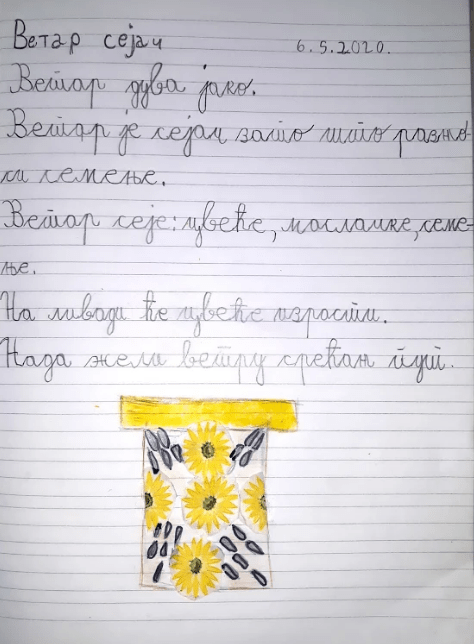 Ветар сејач 6.5.2020.
Ветар дува јако.
Ветар је сејач зато што разно-
си семење.
Ветар сеје: цвеће, маслачке, семе-
ње.
На ливади ће цвеће израсти.
Нада жели ветру срећан пут.